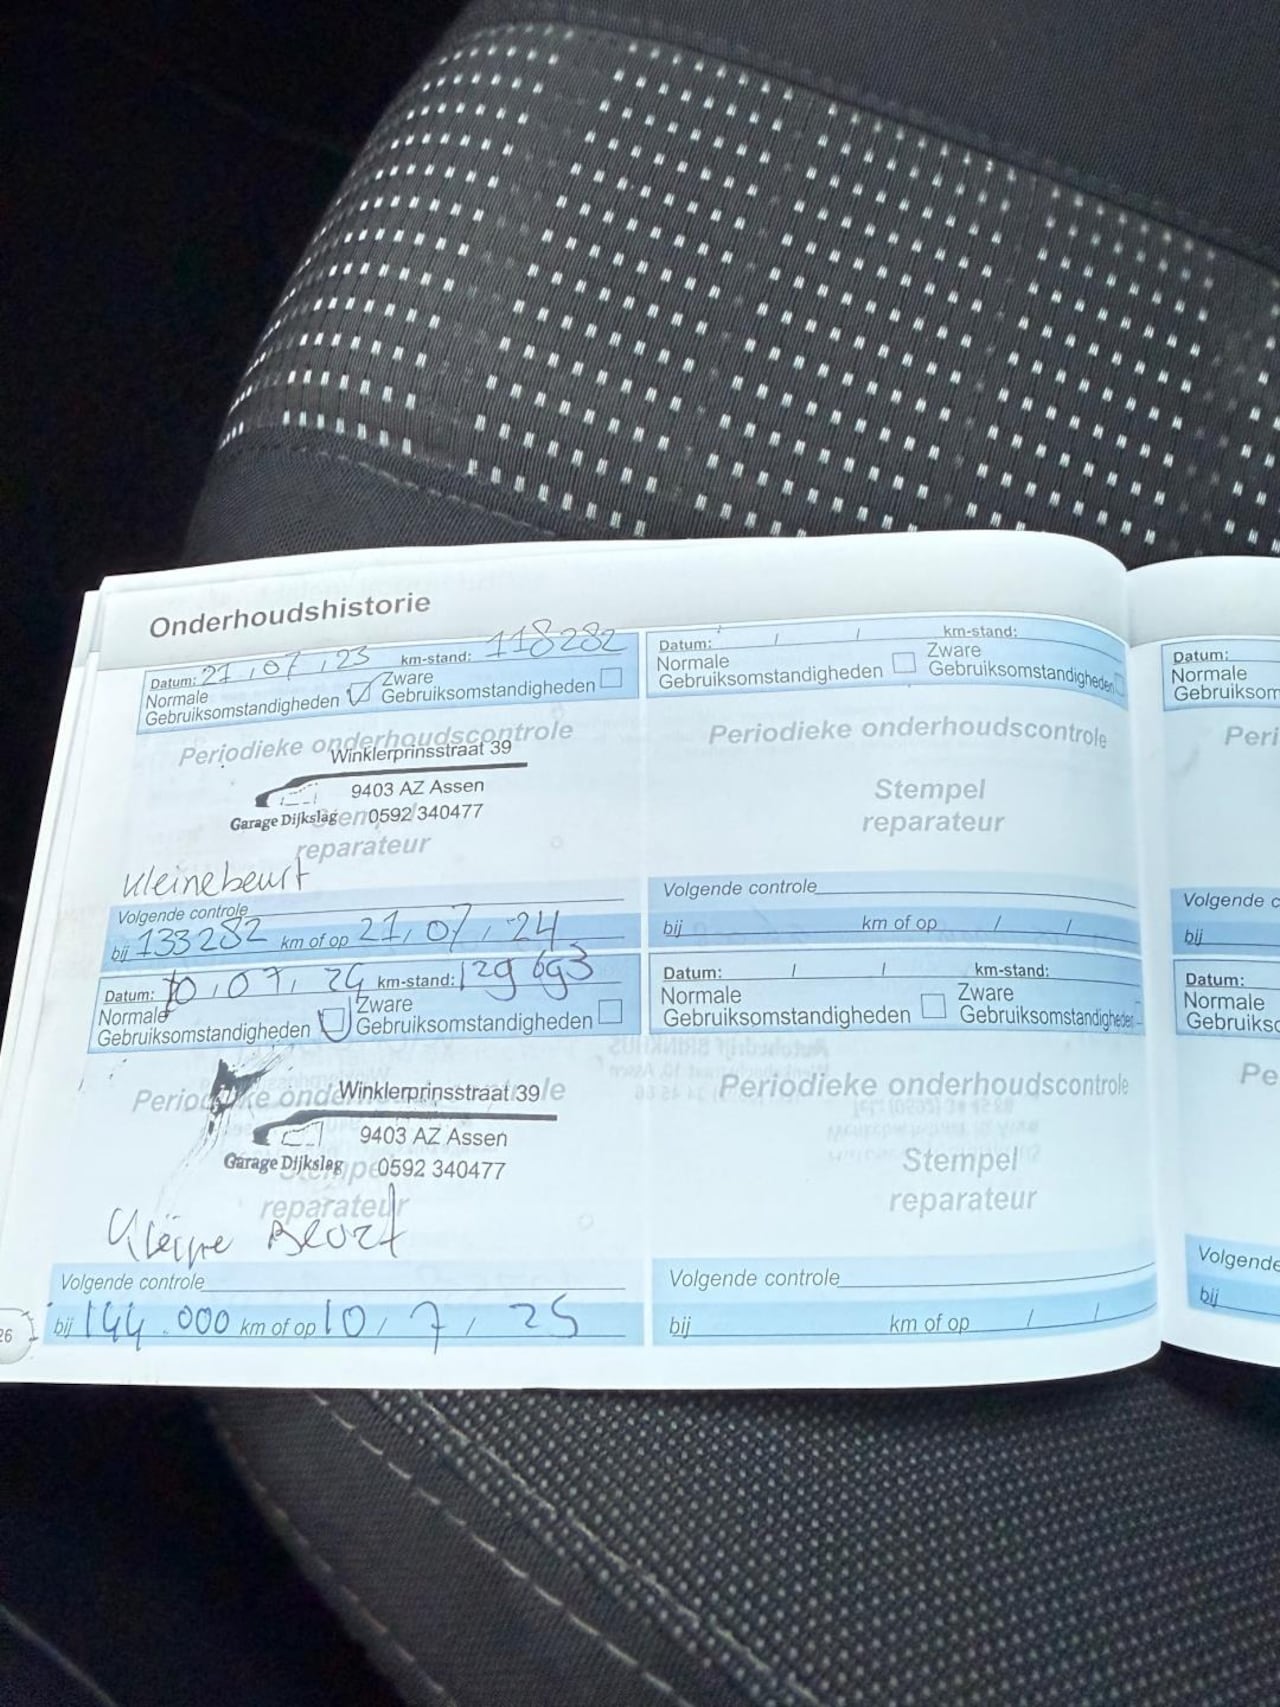 Onderhoudshistorie
Datum: 21 / 07 / 23 km-stand: 118282
Normale Gebruiksomstandigheden Zware Gebruiksomstandigheden
Periodieke onderhoudscontrole
Winklerprinsstraat 39
9403 AZ Assen
Garage Dijkslag 0592 340477
Stempel
reparateur
kleinebeurt
Volgende controle
bij 133282 km of op 21 / 07 / 24
Datum: 10 / 07 / 24 km-stand: 129693
Normale Gebruiksomstandigheden Zware Gebruiksomstandigheden
Periodieke onderhoudscontrole
Winklerprinsstraat 39
9403 AZ Assen
Garage Dijkslag 0592 340477
Stempel
reparateur
Kleine Beurt
Volgende controle
bij 144.000 km of op 10 / 7 / 25
26
Datum: / / km-stand:
Normale Gebruiksomstandigheden Zware Gebruiksomstandigheden
Periodieke onderhoudscontrole
Stempel
reparateur
Volgende controle
bij km of op / /
Datum: / / km-stand:
Normale Gebruiksomstandigheden Zware Gebruiksomstandigheden
Periodieke onderhoudscontrole
Stempel
reparateur
Volgende controle
bij km of op / /
Datum:
Normale
Gebruiksom
Peri
Volgende c
bij
Datum:
Normale
Gebruiksc
Pe
Volgende
bij